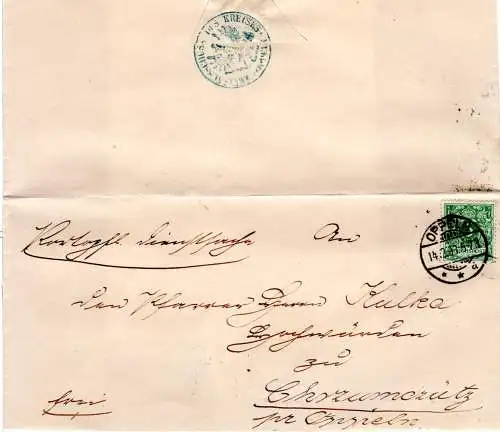 KREISES
OPPELN
Portopfl. Dienstsache An
den Pfarrer Herrn Kulka
Hochwürden
zu
Chrzumczütz
frei
pr Oppeln